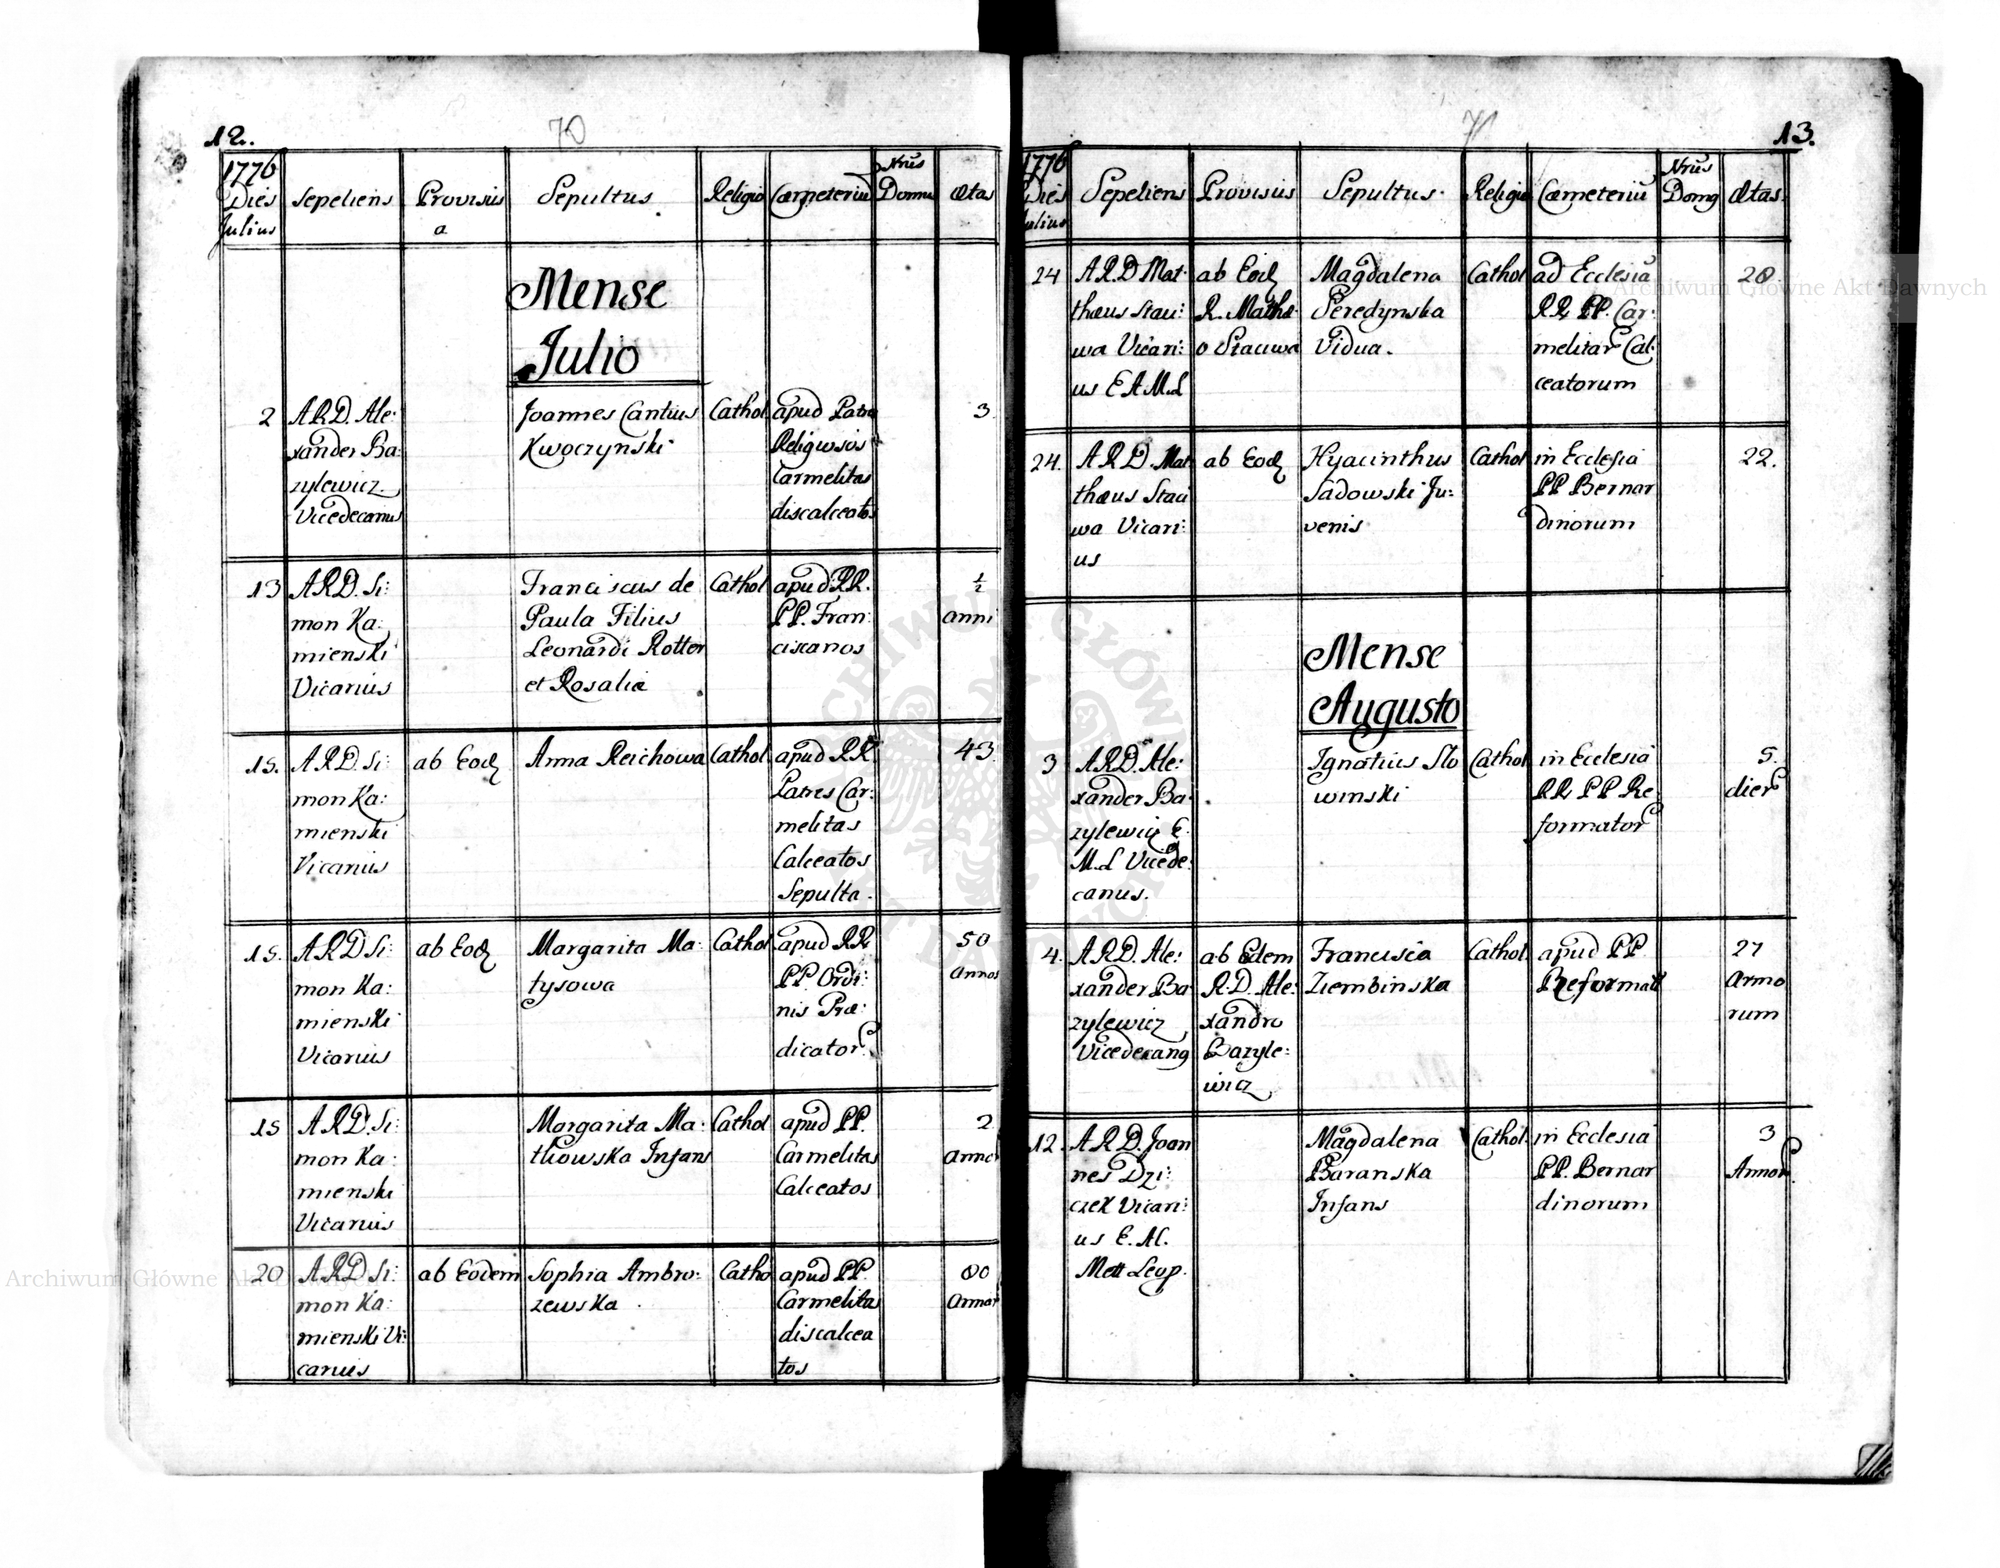 12.
70
1776
Dies
Julius
Sepeliens
Provisus
a
Sepultus
Religio
Cœmeteriũ
Nrũs
Domus
Ætas
Mense
Julio
2
A.R.D. Ale:
xander Ba:
zylewicz
Vicedecanus
Joannes Cantius
Kwoczynski
Cathol
apud Patres
Religiosos
Carmelitas
discalceatos
3
13
A.R.D. Si:
mon Ka:
mienski
Vicarius
Franciscus de
Paula Filius
Leonardi Rotter
et Rosaliæ
Cathol
apud R.R.
P.P. Fran:
ciscanos
½
anni
15.
A.R.D. Si:
mon Ka:
mienski
Vicarius
ab Eod
Anna Reichowa
Cathol
apud RR
Patres Car:
melitas
Calceatos
Sepulta.
43
15.
A.R.D Si:
mon Ka:
mienski
Vicarius
ab Eod
Margarita Ma:
tysowa
Cathol
apud RR
P.P. Ordi:
nis Præ:
dicator:
50
annos
15
A.R.D. Si:
mon Ka:
mienski
Vicarius
Margarita Ma:
tkowska Infans
Cathol
apud PP.
Carmelitas
Calceatos
2
annor
20
A.R.D Si:
mon Ka:
mienski Vi:
carius
ab Eodem
Sophia Ambro:
zewska.
Catho
apud PP.
Carmelitas
discalcea
tos
80
annor
13.
71
1776
Dies
Julius
Sepeliens
Provisus
Sepultus.
Religio
Cœmeteriũ
Nrũs
Domg
Ætas.
24
A.R.D Mat:
thæus Stau:
wa Vicari:
us E.A.M.L
ab Eod
R. Mathæ
o Stauwa
Magdalena
Peredynska
Vidua.
Cathol
ad Ecclesiã
RR PP. Car:
melitar Cal:
ceatorum
28.
24.
A.R.D. Mat
thæus Stau
wa Vicari:
us
ab Eod
Hyacinthus
Sadowski Ju:
venis
Cathol
in Ecclesiã
PP Bernar
dinorum
22.
Mense
Augusto
3
A.R.D. Ale:
xander Ba:
zylewicz E.
M.L Vicede:
canus.
Ignatius Slo
winski
Cathol
in Ecclesiã
RR PP Re
formator
5.
dier
4.
A.R.D. Ale:
xander Ba:
zylewicz
Vicedecang
ab Edem
R.D. Ale:
xandro
Bazyle:
wicz
Francisca
Ziembinska
Cathol.
apud PP.
Reformatt
27
Anno
rum
12.
A.R.D. Joan
nes Dzi:
czek Vicari:
us E. Al.
Mett Leop.
Magdalena
Baranska
Infans
Cathol.
in Ecclesiã
PP. Bernar
dinorum
3
Annor.
Archiwum Główne Akt Dawnych
Archiwum Główne Akt Dawnych
ARCHIWUM GŁÓWNE
AKT DAWNYCH